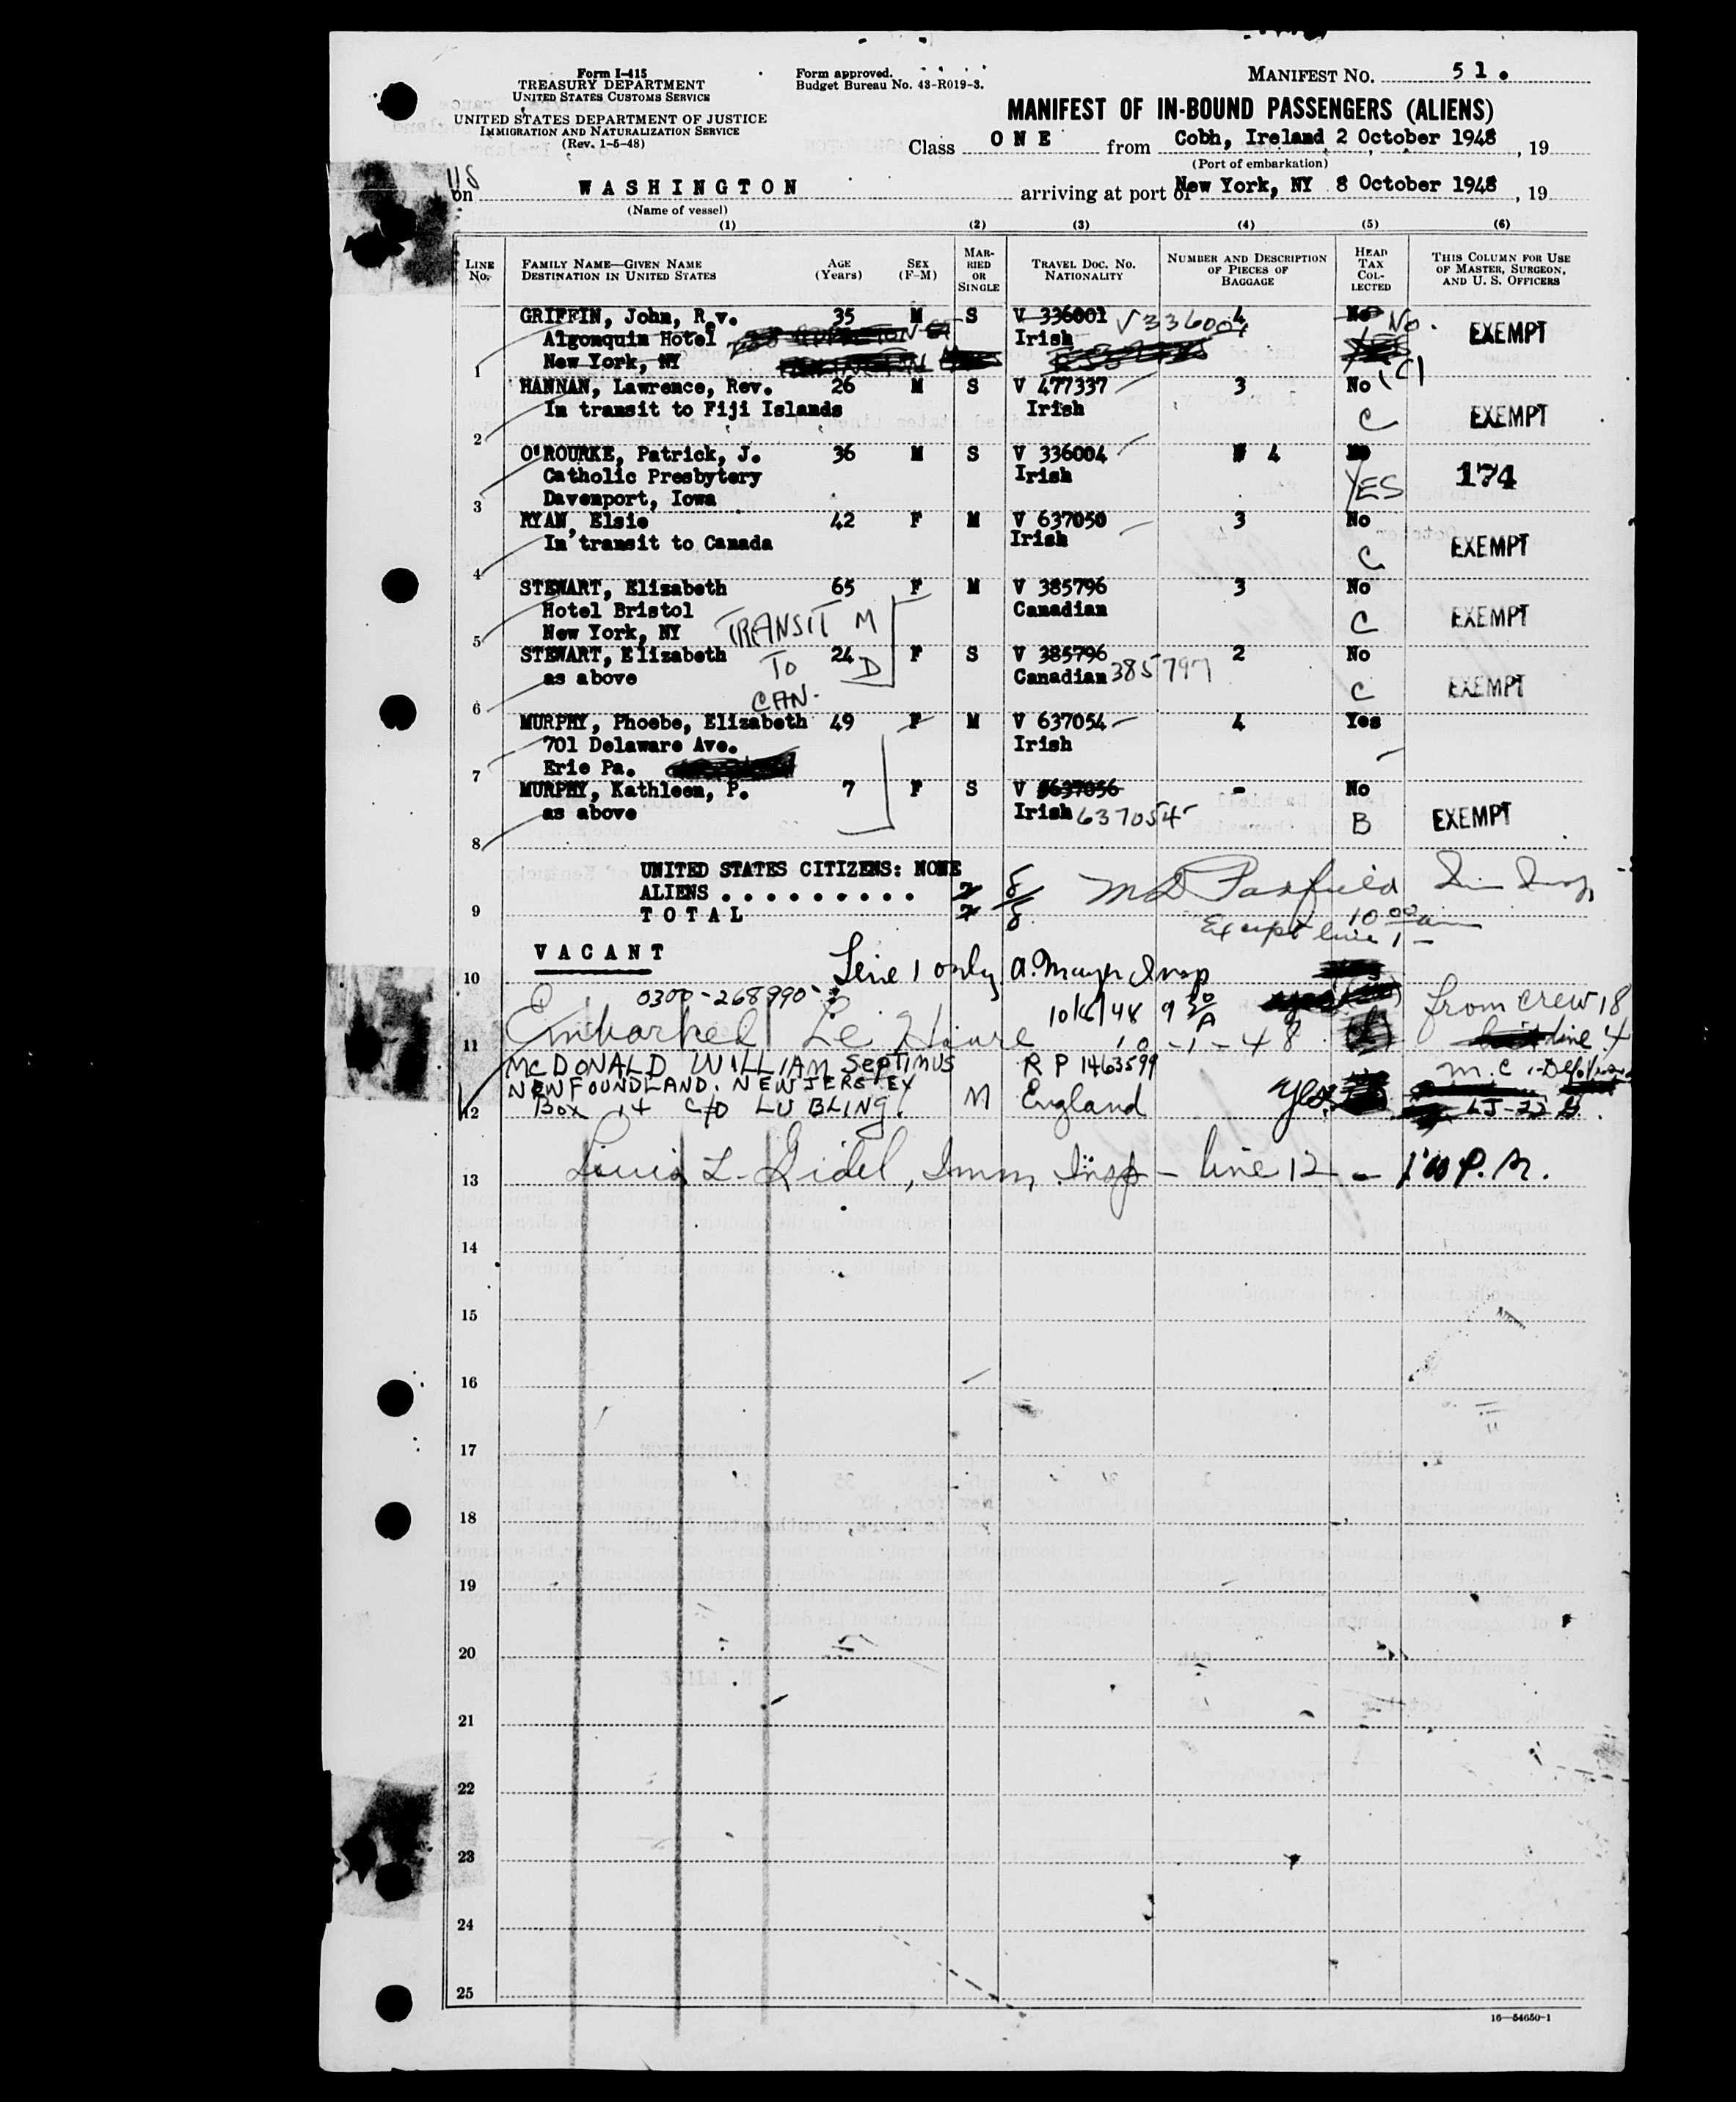 Form I-415
TREASURY DEPARTMENT
UNITED STATES CUSTOMS SERVICE
UNITED STATES DEPARTMENT OF JUSTICE
IMMIGRATION AND NATURALIZATION SERVICE
(Rev. 1-5-48)
Form approved.
Budget Bureau No. 43-R019-3.
MANIFEST NO. 51.
MANIFEST OF IN-BOUND PASSENGERS (ALIENS)
Class ONE from Cobh, Ireland 2 October 1948, 19
(Port of embarkation)
on WASHINGTON arriving at port of New York, NY 8 October 1948, 19
(Name of vessel)
(1) (2) (3) (4) (5) (6)
LINE NO. FAMILY NAME—GIVEN NAME DESTINATION IN UNITED STATES AGE (Years) SEX (F-M) MARRIED OR SINGLE TRAVEL DOC. NO. NATIONALITY NUMBER AND DESCRIPTION OF PIECES OF BAGGAGE HEAD TAX COLLECTED THIS COLUMN FOR USE OF MASTER, SURGEON, AND U. S. OFFICERS
GRIFFIN, John, Rev. 35 M S V 336001 V336001 4 No No.
Algonquin Hotel Irish EXEMPT
1 New York, NY
HANNAN, Lawrence, Rev. 26 M S V 477337 3 No
In transit to Fiji Islands Irish C EXEMPT
2
O'ROURKE, Patrick, J. 36 M S V 336004 4 No
Catholic Presbytery Irish YES 174
3 Davenport, Iowa
RYAN, Elsie 42 F M V 637050 3 No
In transit to Canada Irish C EXEMPT
4
STEWART, Elizabeth 65 F M V 385796 3 No
Hotel Bristol Canadian C EXEMPT
5 New York, NY TRANSIT M
STEWART, Elizabeth 24 F S V 385796 2 No
as above TO D Canadian 385797 C EXEMPT
6 CAN.
MURPHY, Phoebe, Elizabeth 49 F M V 637054 4 Yes
701 Delaware Ave. Irish
7 Erie Pa.
MURPHY, Kathleen, P. 7 F S V 637056 - No
as above Irish 637054 B EXEMPT
8
UNITED STATES CITIZENS: NONE
ALIENS . . . . . . . . . 7 8
9 TOTAL 7 8
10 00 am
Except line 1 -
VACANT
10 Line 1 only A. Mayer Insp
0300-268990
10/8/48 9 30 A from crew 18
11 Embarked Le Havre 10-1-48 line 4
MCDONALD WILLIAM SEPTIMUS R P 1463599
NEWFOUNDLAND. NEW JERSEY
12 Box 14 C/O LUBLING. M England yes
13 Louis L. Gidel, Imm. Insp - line 12 - 1:00 P.M.
14
15
16
17
18
19
20
21
22
23
24
25
16—54650-1